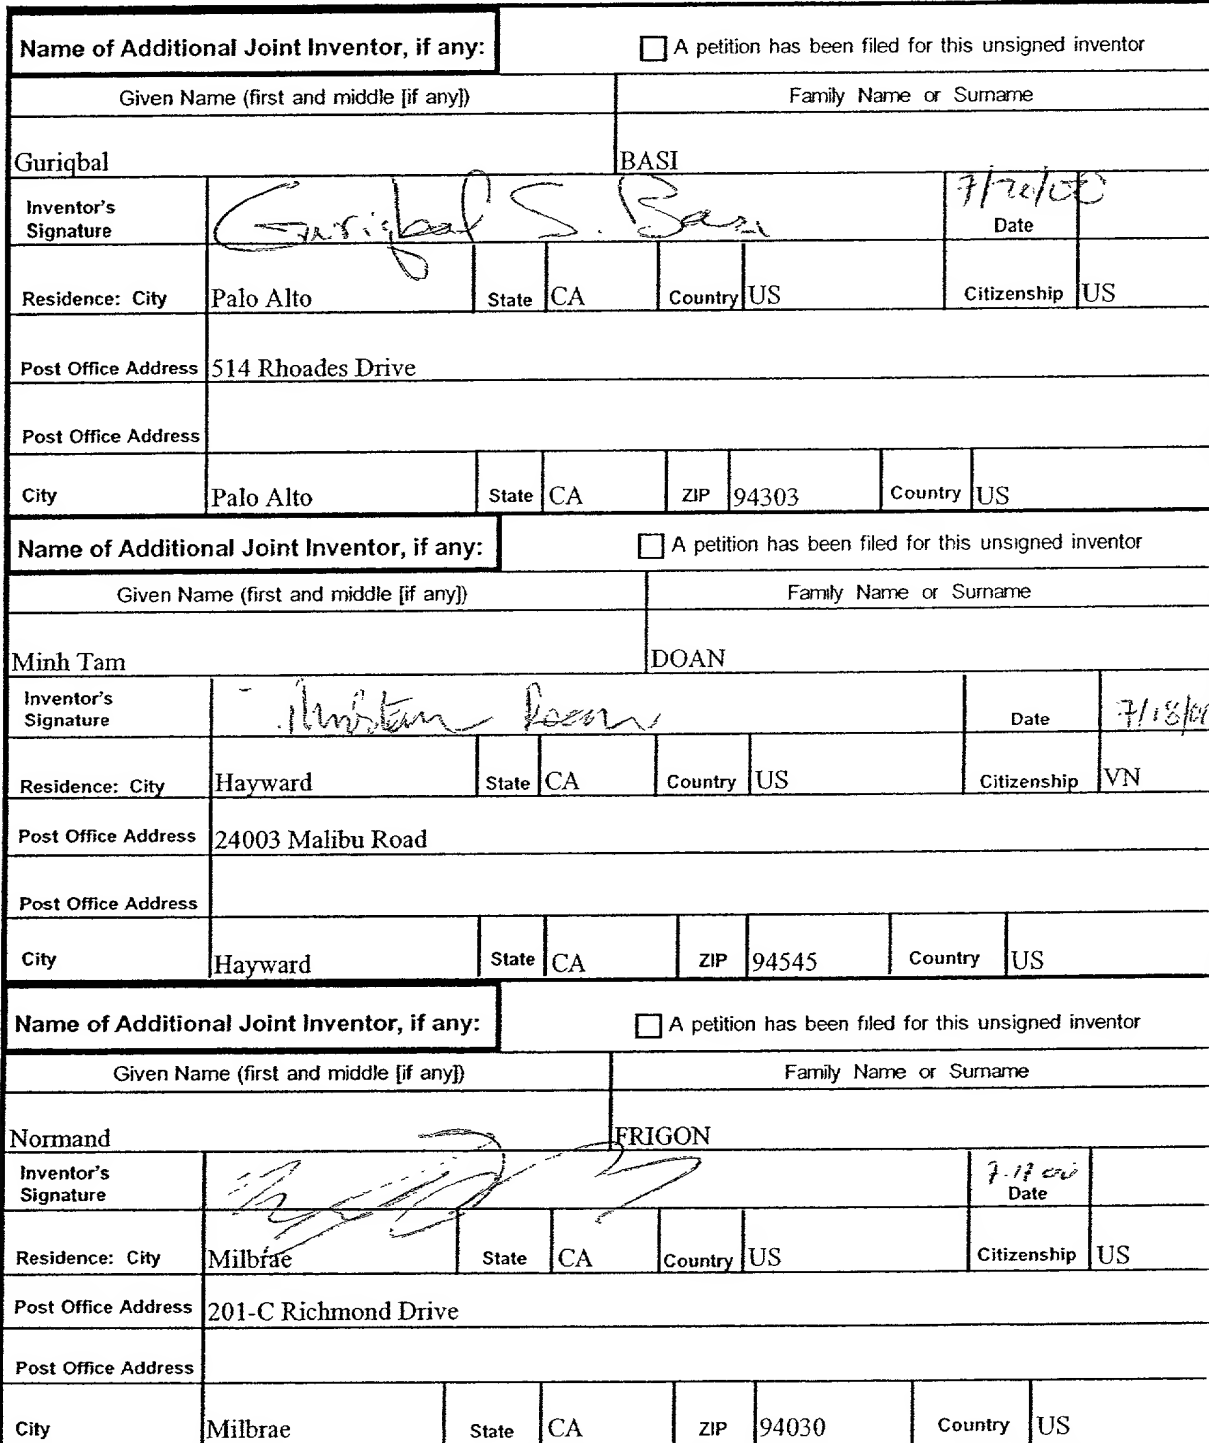 Name of Additional Joint Inventor, if any: A petition has been filed for this unsigned inventor
Given Name (first and middle [if any]) Family Name or Surname
Guriqbal BASI
Inventor's Signature Guriqbal S. Basi Date
Residence: City Palo Alto State CA Country US Citizenship US
Post Office Address 514 Rhoades Drive
Post Office Address
City Palo Alto State CA ZIP 94303 Country US
Name of Additional Joint Inventor, if any: A petition has been filed for this unsigned inventor
Given Name (first and middle [if any]) Family Name or Surname
Minh Tam DOAN
Inventor's Signature Date 7/18/00
Residence: City Hayward State CA Country US Citizenship VN
Post Office Address 24003 Malibu Road
Post Office Address
City Hayward State CA ZIP 94545 Country US
Name of Additional Joint Inventor, if any: A petition has been filed for this unsigned inventor
Given Name (first and middle [if any]) Family Name or Surname
Normand FRIGON
Inventor's Signature Date
Residence: City Milbrae State CA Country US Citizenship US
Post Office Address 201-C Richmond Drive
Post Office Address
City Milbrae State CA ZIP 94030 Country US